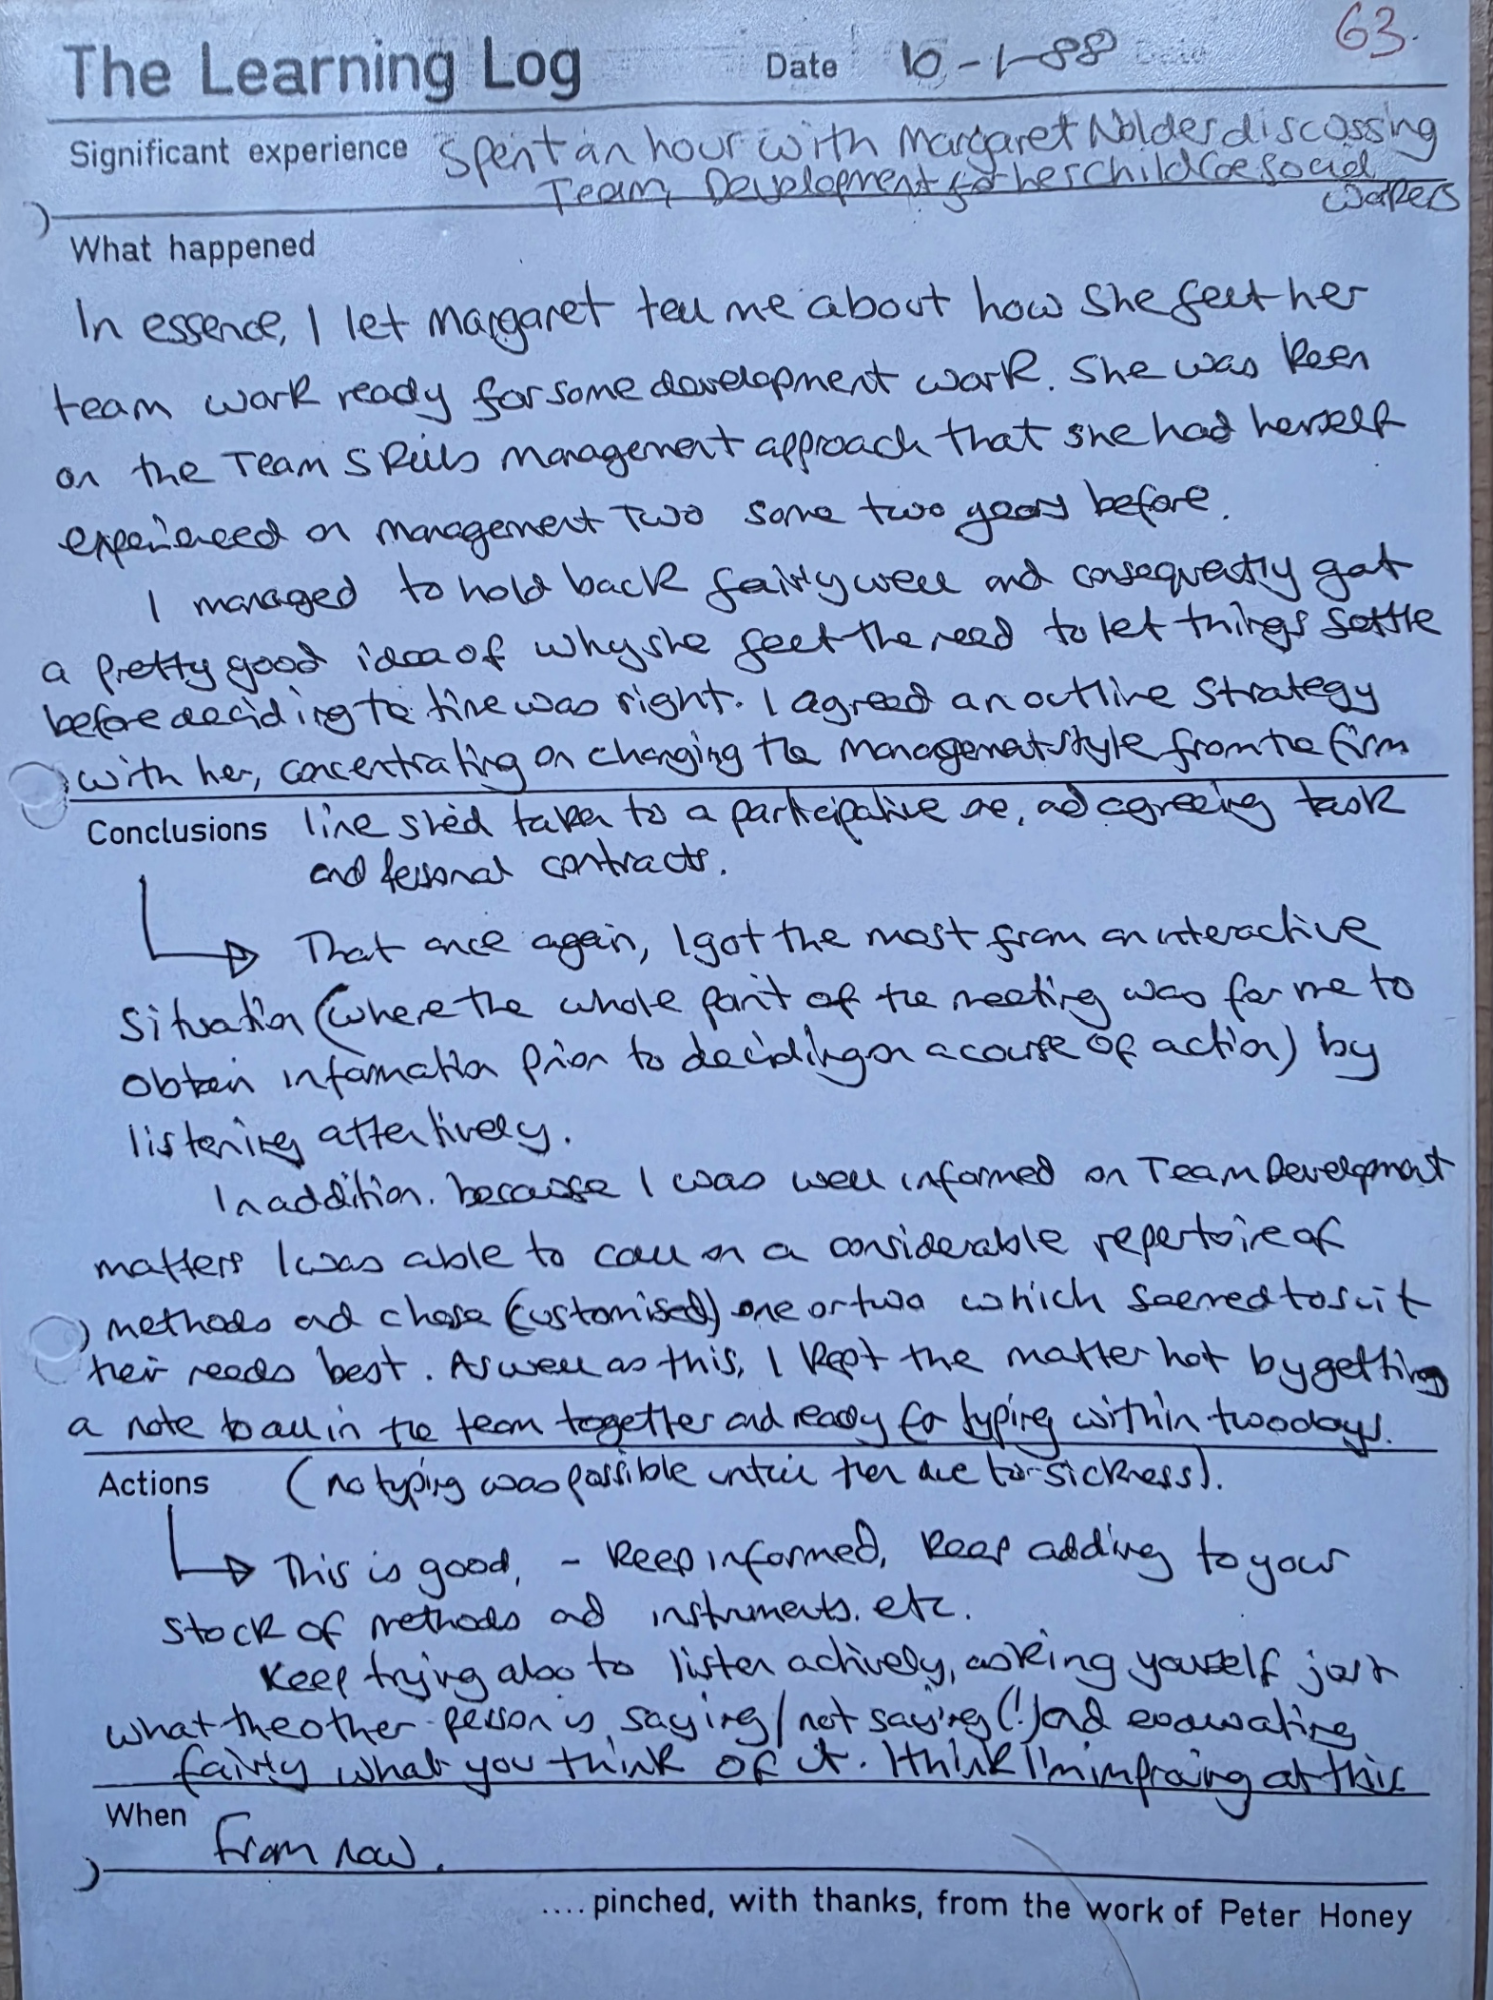 63.
The Learning Log Date 10-1-88
Significant experience Spent an hour with Margaret Nolder discussing
Team Development for her Child Care Social
Workers
What happened
In essence, I let Margaret tell me about how she felt her
team work ready for some development work. She was keen
on the Team Skills Management approach that she had herself
experienced on Management Two some two years before.
I managed to hold back fairly well and consequently got
a pretty good idea of why she felt the need to let things settle
before deciding the time was right. I agreed an outline strategy
with her, concentrating on changing the management style from the firm
Conclusions line she'd taken to a participative one, and agreeing task
and personal contracts.
That once again, I got the most from an interactive
situation (where the whole part of the meeting was for me to
obtain information prior to deciding on a course of action) by
listening attentively.
In addition. because I was well informed on Team Development
matters I was able to call on a considerable repertoire of
methods and chose (customised) one or two which seemed to suit
their needs best. As well as this, I kept the matter hot by getting
a note to all in the team together and ready for typing within two days.
Actions (no typing was possible until then due to sickness).
This is good, - Keep informed, keep adding to your
stock of methods and instruments. etc.
Keep trying also to listen actively, asking yourself just
what the other person is saying/not saying (!) and evaluating
fairly what you think of it. I think I'm improving at this
When From now.
.... pinched, with thanks, from the work of Peter Honey